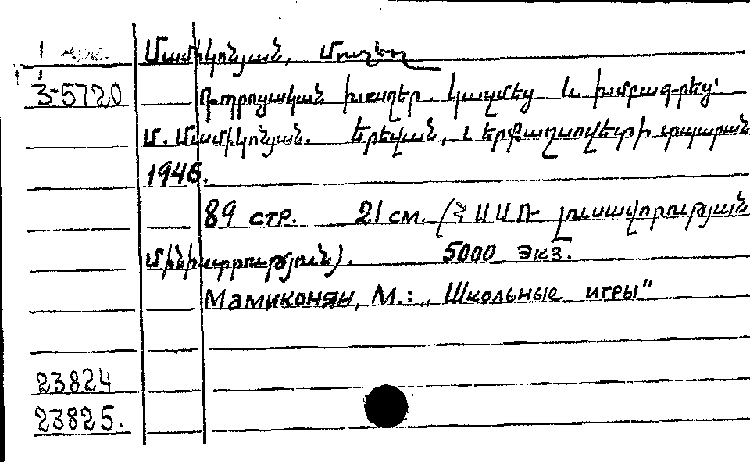 Մամիկոնյան, Մուշեղ
3-5720 Դպրոցական խաղեր. կազմեց և խմբագրեց՝
Մ. Մամիկոնյան. Երեվան, Երքաղսովետի տպարան
1946.
89 стр. 21 см. (ՀՍՍՌ լուսավորության
մինիստրություն). 5000 экз.
Мамиконян, М.: „Школьные игры"
23824
23825.